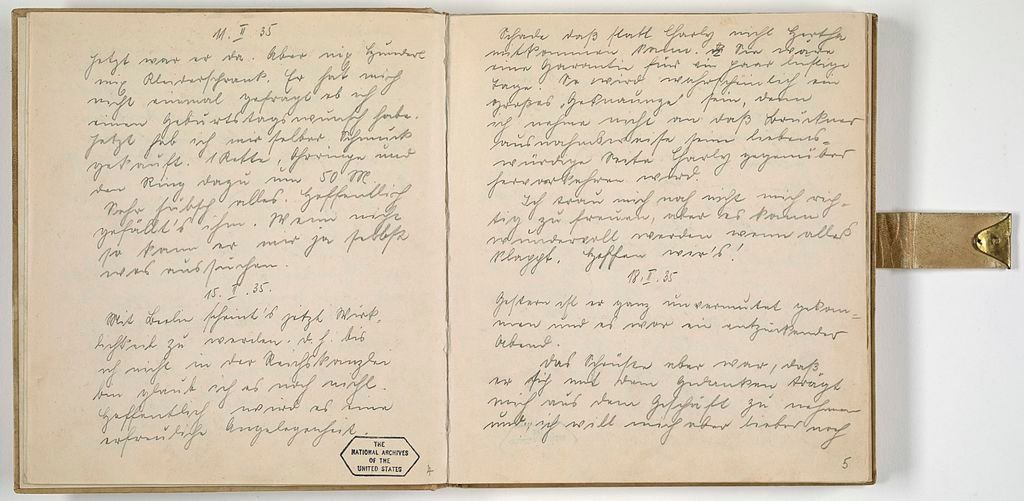 11. II 35
Jetzt war er da. Aber nix Hunderl
nix Kleiderschrank. Er hat mich
nicht einmal gefragt ob ich
einen Geburtstagswunsch habe.
Jetzt hab ich mir selber Schmuck
gekauft. 1 Kette, Ohrringe und
den Ring dazu um 50 M
Sehr hübsch alles. Hoffentlich
gefällt's ihm. Wenn nicht
so kann er mir ja selbst
was aussuchen.
15. II. 35.
Mit Berlin scheint's jetzt Wirk-
lichkeit zu werden. d.h. bis
ich nicht in der Reichskanzlei
bin glaub ich es noch nicht.
Hoffentlich wird es eine
erfreuliche Angelegenheit.
THE
NATIONAL ARCHIVES
OF THE
UNITED STATES
4
Schade daß statt Charly nicht Hertha
mitkommen kann. Sie wäre
eine Garantie für ein paar lustige
Tage. So wird wahrscheinlich ein
großes „Geknaunze" sein, denn
ich nehme nicht an daß Brückner
ausnahmsweise seine liebens-
würdige Seite Charly gegenüber
hervorkehren wird.
Ich trau mich noch nicht mich rich-
tig zu freuen, aber es kann
wundervoll werden wenn alles
klappt. Hoffen wir's!
18. II. 35
Gestern ist er ganz unvermutet gekom-
men und es war ein entzückender
Abend.
Das Schönste aber war, daß
er sich mit dem Gedanken trägt
mich aus dem Geschäft zu nehmen
und ich will mich aber lieber noch
5